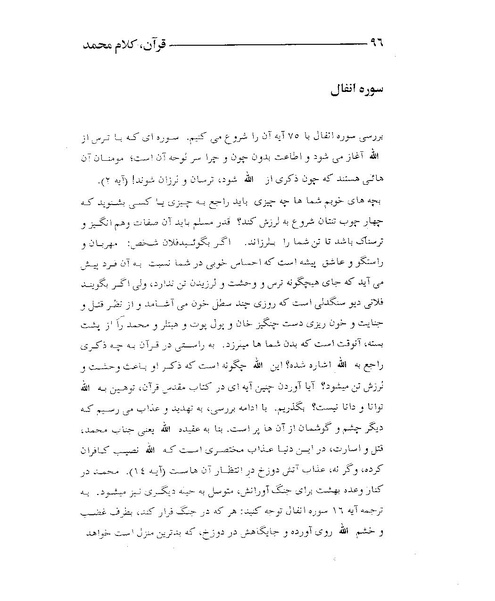 ۹۶ ــــــــــــــــــــ قرآن، کلام محمد
سوره انفال
بررسی سوره انفال با ۷۵ آیه آن را شروع می کنیم. سوره ای که با ترس از
الله آغاز می شود و اطاعت بدون چون و چرا سر لوحه آن است؛ مومنان آن
هائی هستند که چون ذکری از الله شود، ترسان و لرزان شوند! (آیه ۲).
بچه های خوبم شما ها چه چیزی باید راجع به چیزی یا کسی بشنوید که
چهار چوب تنتان شروع به لرزش کند؟ قدر مسلم باید آن صفات وهم انگیز و
ترسناک باشد تا تن شما را بلرزاند. اگر بگوئیدفلان شخص: مهربان و
راستگو و عاشق پیشه است که احساس خوبی در شما نسبت به آن فرد پیش
می آید که جای هیچگونه ترس و وحشت و لرزیدن تن ندارد، ولی اگر بگویند
فلانی دیو سنگدلی است که روزی چند سطل خون می آشامد و از نظر قتل و
جنایت و خون ریزی دست چنگیز خان و پول پوت و هیتلر و محمد را از پشت
بسته، آنوقت است که بدن شما ها میلرزد. به راستی در قرآن به چه ذکری
راجع به الله اشاره شده؟ این الله چگونه است که ذکر او باعث وحشت و
لرزش تن میشود؟ آیا آوردن چنین آیه ای در کتاب مقدس قرآن، توهین به الله
توانا و دانا نیست؟ بگذریم. با ادامه بررسی، به تهدید و عذاب می رسیم که
دیگر چشم و گوشمان از آن ها پر است. بنا به عقیده الله یعنی جناب محمد،
قتل و اسارت، در این دنیا عذاب مختصری است که الله نصیب کافران
کرده، وگر نه، عذاب آتش دوزخ در انتظار آن هاست (آیه ۱۴). محمد در
کنار وعده بهشت برای جنگ آورانش، متوسل به حیله دیگری نیز میشود. به
ترجمه آیه ۱۶ سوره انفال توجه کنید: هر که در جنگ فرار کند، بطرف غضب
و خشم الله روی آورده و جایگاهش در دوزخ، که بدترین منزل است خواهد